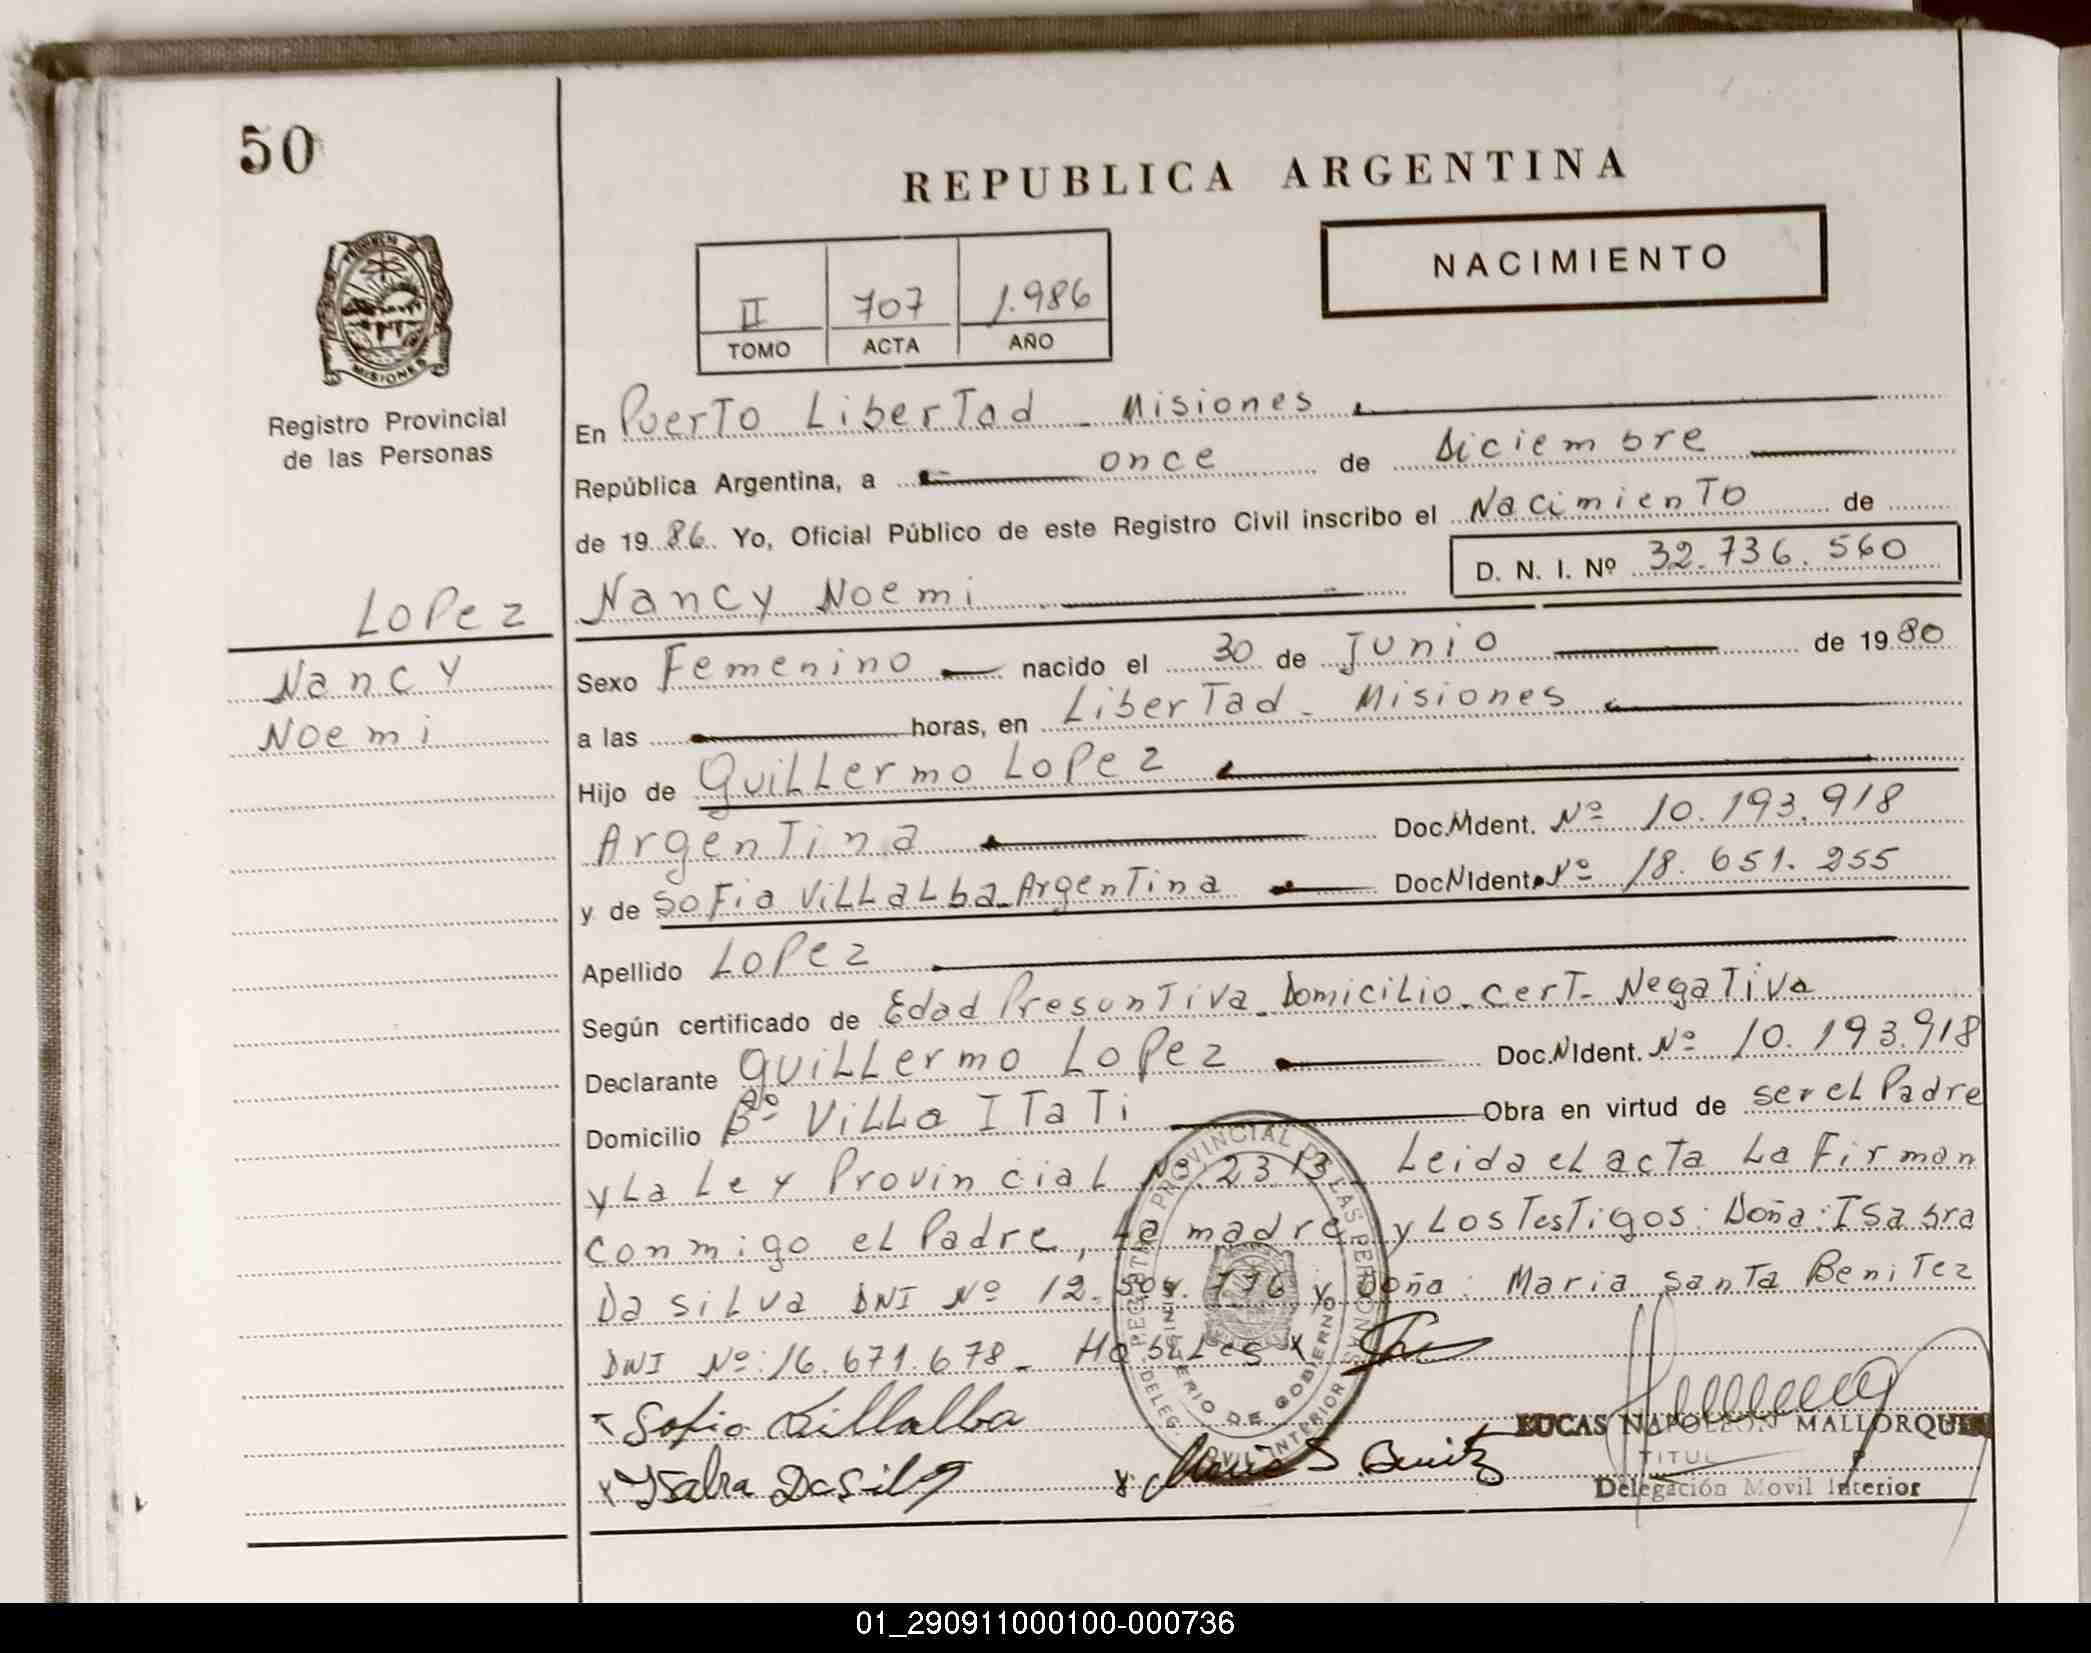 50
REPUBLICA ARGENTINA
NACIMIENTO
II 707 1.986
TOMO ACTA AÑO
PROVINCIA DE
MISIONES
Registro Provincial
de las Personas
En Puerto Libertad - Misiones
República Argentina, a once de Diciembre
de 1986. Yo, Oficial Público de este Registro Civil inscribo el Nacimiento de
D. N. I. Nº 32.736.560
Lopez
Nancy
Noemi
Nancy Noemi
Sexo Femenino nacido el 30 de Junio de 1980
a las horas, en Libertad - Misiones
Hijo de Guillermo Lopez
Argentina Doc. Ident. Nº 10.193.918
y de Sofia Villalba - Argentina Doc. N Ident. Nº 18.651.255
Apellido Lopez
Según certificado de Edad Presuntiva - Domicilio - cert - Negativa
Declarante Guillermo Lopez Doc. N Ident. Nº 10.193.918
Domicilio Bº Villa Itati Obra en virtud de ser el Padre
y La Ley Provincial Nº 2313 Leida el acta La Firman
conmigo el Padre, La madre y Los Testigos: Doña: Isabra
Da Silva DNI Nº 12. 776 y Doña: Maria Santa Benitez
DNI Nº: 16.671.678 - Habiles x
x Sofia Villalba
x Ysabra DaSilva x Maria S. Benitz
REGISTRO PROVINCIAL DE LAS PERSONAS
MINISTERIO DE GOBIERNO
DELEG. MOVIL INTERIOR
LUCAS NAPOLEON MALLORQUIN
TITUL
Delegación Movil Interior
01_290911000100-000736